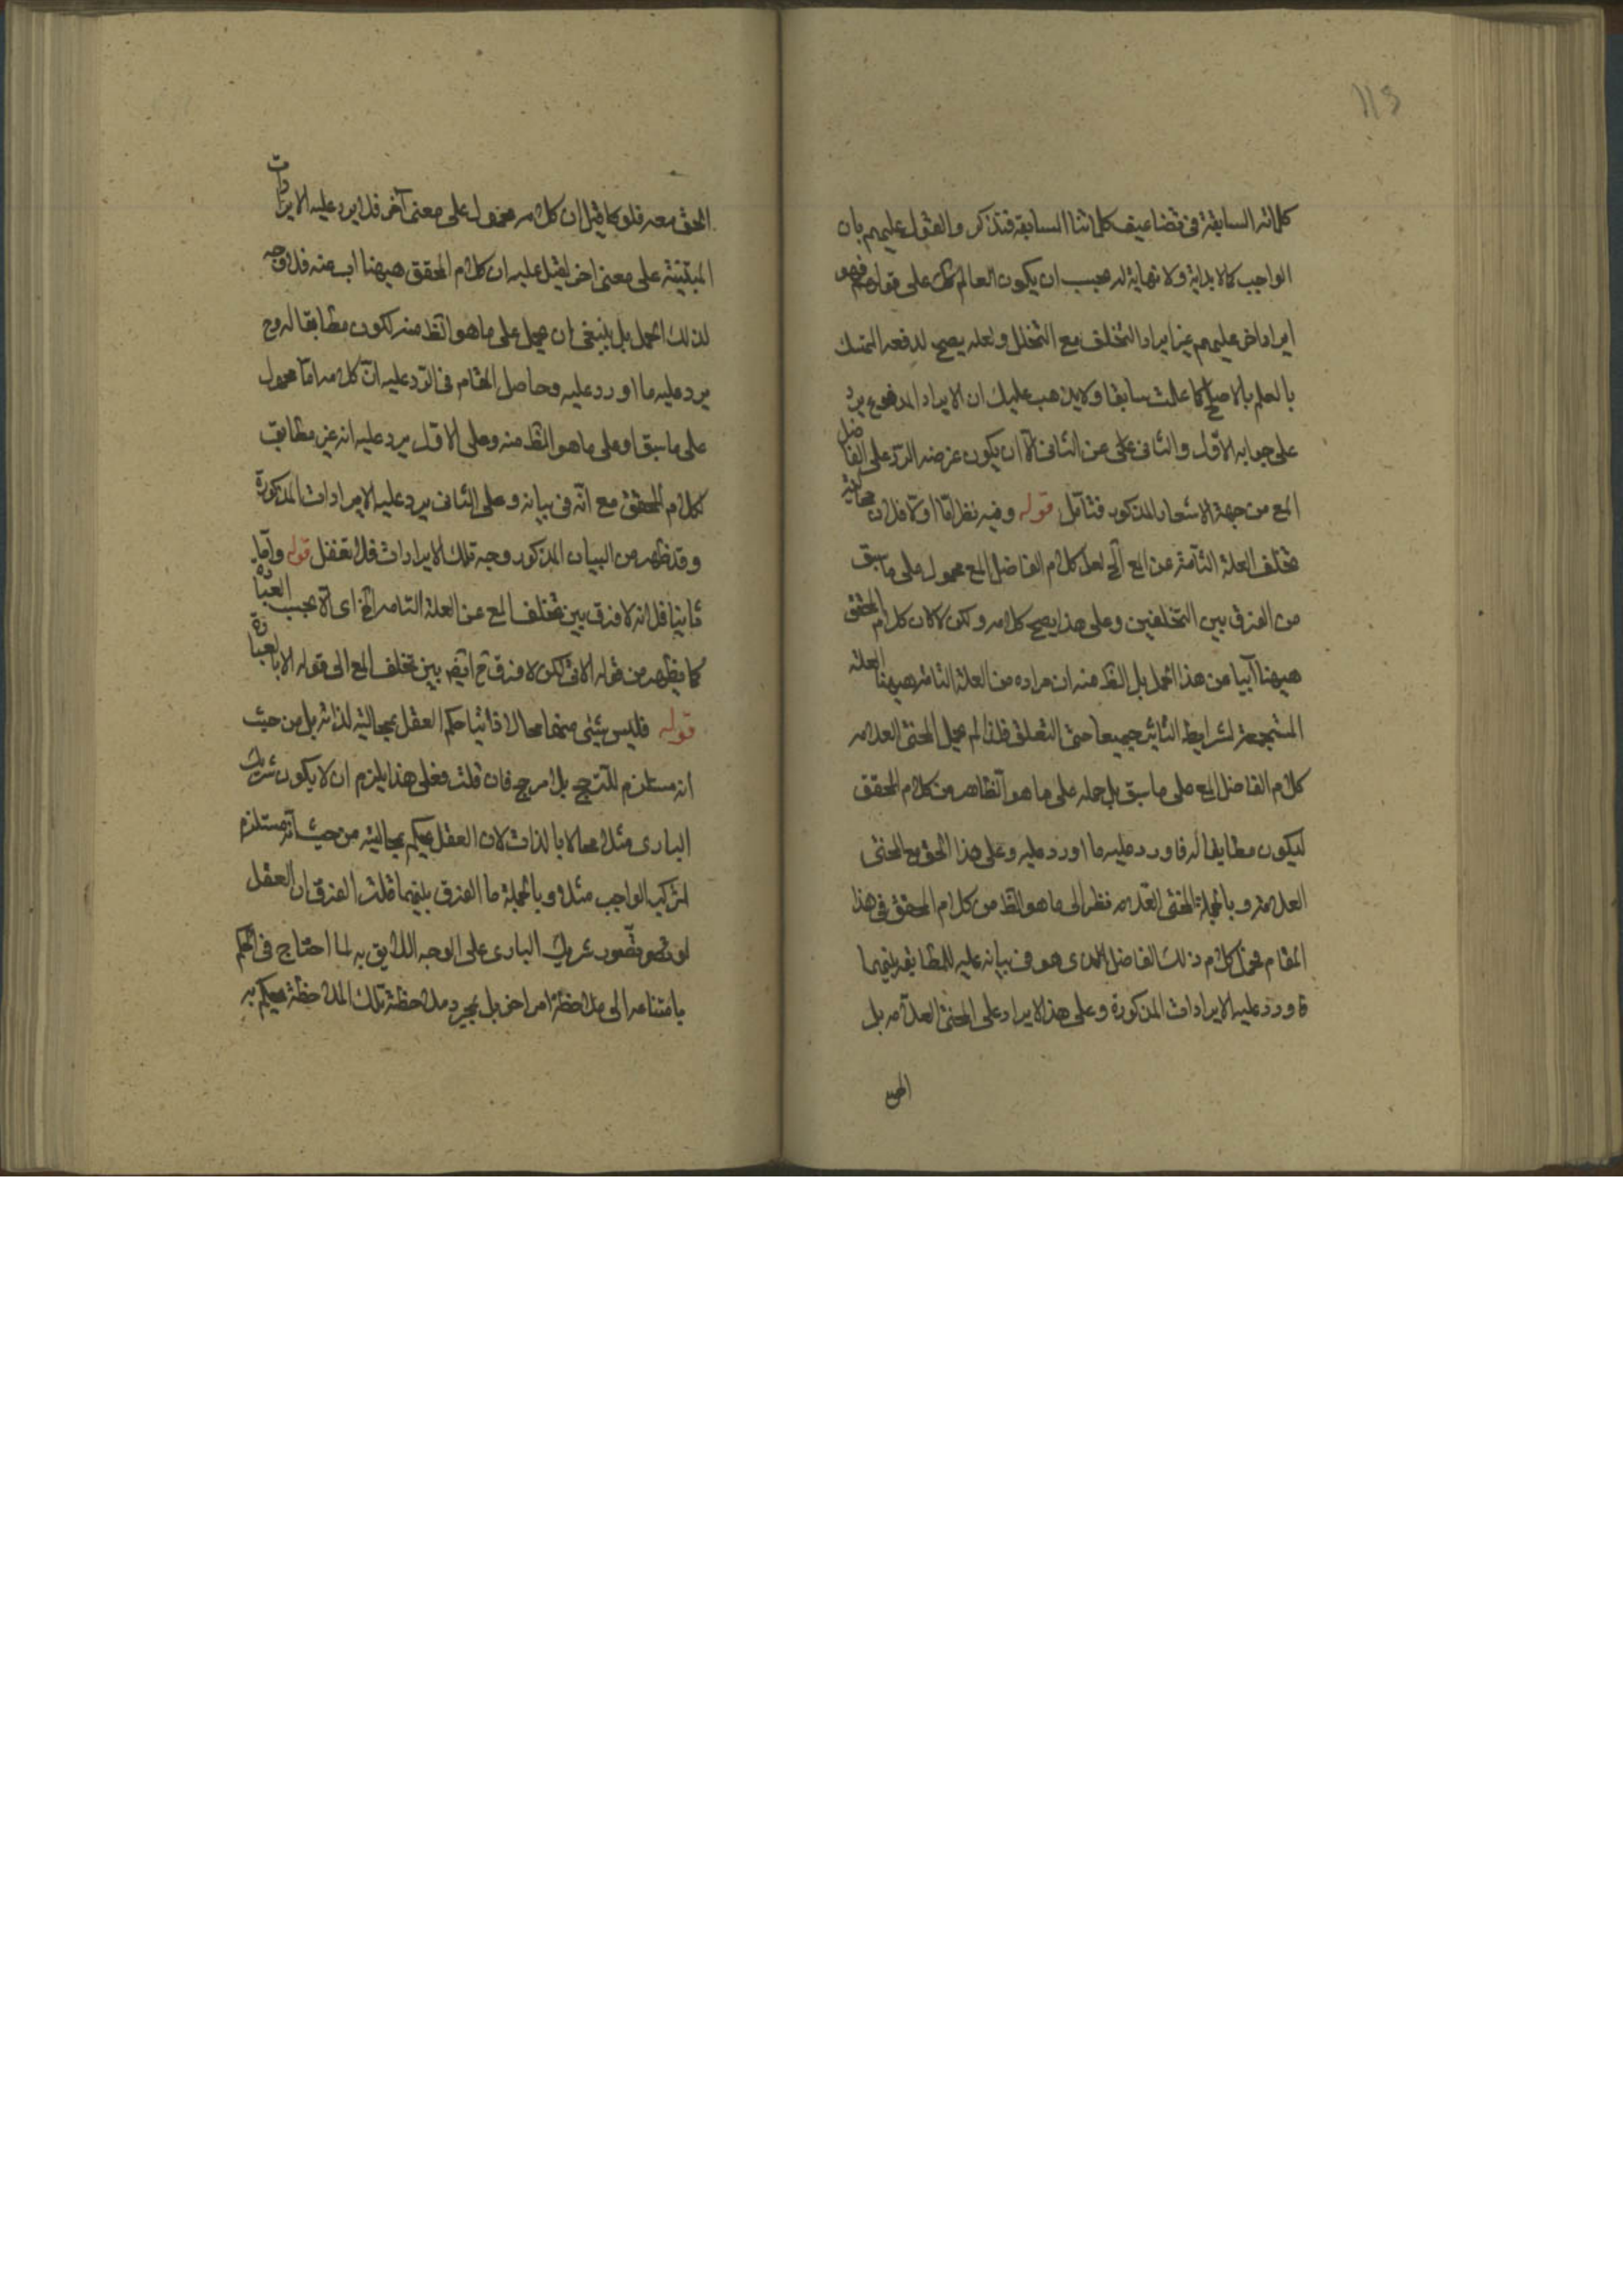 113
كلماته السابقة فى تضاعيف كلماتنا السابقة فتذكر والقول عليهم بان
الواجب كما لا بداية ولا نهاية له يجب ان يكون العالم على قولهم فهو
ايراد اخر عليهم غير ايراد التخلف مع التخلل ولعله يصح لدفعه التمسك
بالعلم بالاصلح كما علمت سابقا ولا يذهب عليك ان الايراد المدفوع يرد
على جوابه الاول والثانى على عن الثانى الا ان يكون غرضه الرد على الفاضل
المع من جهة الاشعار المذكور فتأمل قوله وفيه نظر اما اولا فلان محالية
تخلف العلة التامة عن المع الخ لعل كلام الفاضل المع محمول على ما سبق
من الفرق بين التخلفين وعلى هذا يصح كلامه ولكن لا كان كلام المحقق
هيهنا آبيا عن هذا الحمل بل الظ منه ان مراده من العلة التامة هيهنا العلة
المستجمعة لشرايط التاثير جميعا حتى التعلق فلذا لم يحمل المحشى العلامه
كلام الفاضل المع على ما سبق بل حمله على ما هو الظاهر من كلام المحقق
ليكون مطابقا له فاورد عليه ما اورد عليه وعلى هذا الحق مع المحشى
العلامة وبالجملة المحشى العلامه نظر الى ما هو الظ من كلام المحقق فى هذا
المقام فحمل كلام ذلك الفاضل الذى هو فى بيانه عليه للمطابقة بينهما
فاورد عليه الايرادات المذكورة وعلى هذا لا ايراد على المحشى العلامه بل
الحق
الحق معه فلو كما قيل ان كلامه محمول على معنى آخر فلا يرد عليه الايرادات
المبتنية على معنى اخر لقيل عليه ان كلام المحقق هيهنا اب عنه فلا وجه
لذلك الحمل بل ينبغى ان يحمل على ما هو الظ منه لكون مطابقا له وح
يرد عليه ما اورد عليه وحاصل المقام فى الرد عليه ان كلامه اما محمول
على ما سبق او على ما هو الظ منه وعلى الاول يرد عليه انه غير مطابق
لكلام المحقق مع انه فى بيانه وعلى الثانى يرد عليه الايرادات المذكورة
وقد ظهر من البيان المذكور وجه تلك الايرادات فلا تغفل قوله واما
ثانيا فلانه لا فرق بين تخلف المع عن العلة التامه الخ اى لا يجب العبارة
كما يظهر من قوله الاتى لكن لا فرق ح ايض بين تخلف المع الى قوله الا بالعبارة
قوله فليس شيئى منهما محالا ذاتيا حكم العقل بمحاليته لذاته بل من حيث
انه مستلزم للترجح بلا مرجح فان قلت فعلى هذا يلزم ان لا يكون شريك
البارى مثلا محالا بالذات لان العقل يحكم بمحاليته من حيث انه مستلزم
لتركب الواجب مثلا وبالجملة ما الفرق بينهما قلت الفرق ان العقل
لو تصور شريك البارى على الوجه اللايق به لما احتاج فى الحكم
بامتناعه الى ملاحظة امر اخر بل بمجرد ملاحظة تلك الملاحظة يحكم به